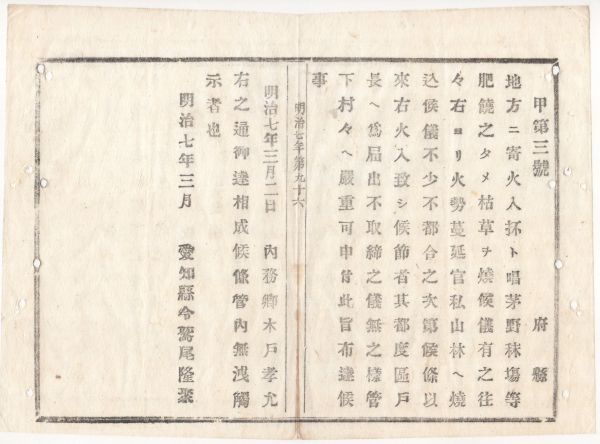 甲第三號
府縣
地方ニ寄火入抔ト唱茅野秣塲等
肥饒之タメ枯草ヲ燒候儀有之往
々右ヨリ火勢蔓延官私山林ヘ燒
込候儀不少不都合之次第候條以
來右火入致シ候節者其都度區戸
長ヘ爲届出不取締之儀無之樣管
下村々ヘ嚴重可申付此旨布達候
事
明治七年三月二日 內務卿木戸孝允
右之通御達相成候條管內無洩觸
示者也
明治七年三月 愛知縣令鷲尾隆聚
明治七年第九十六